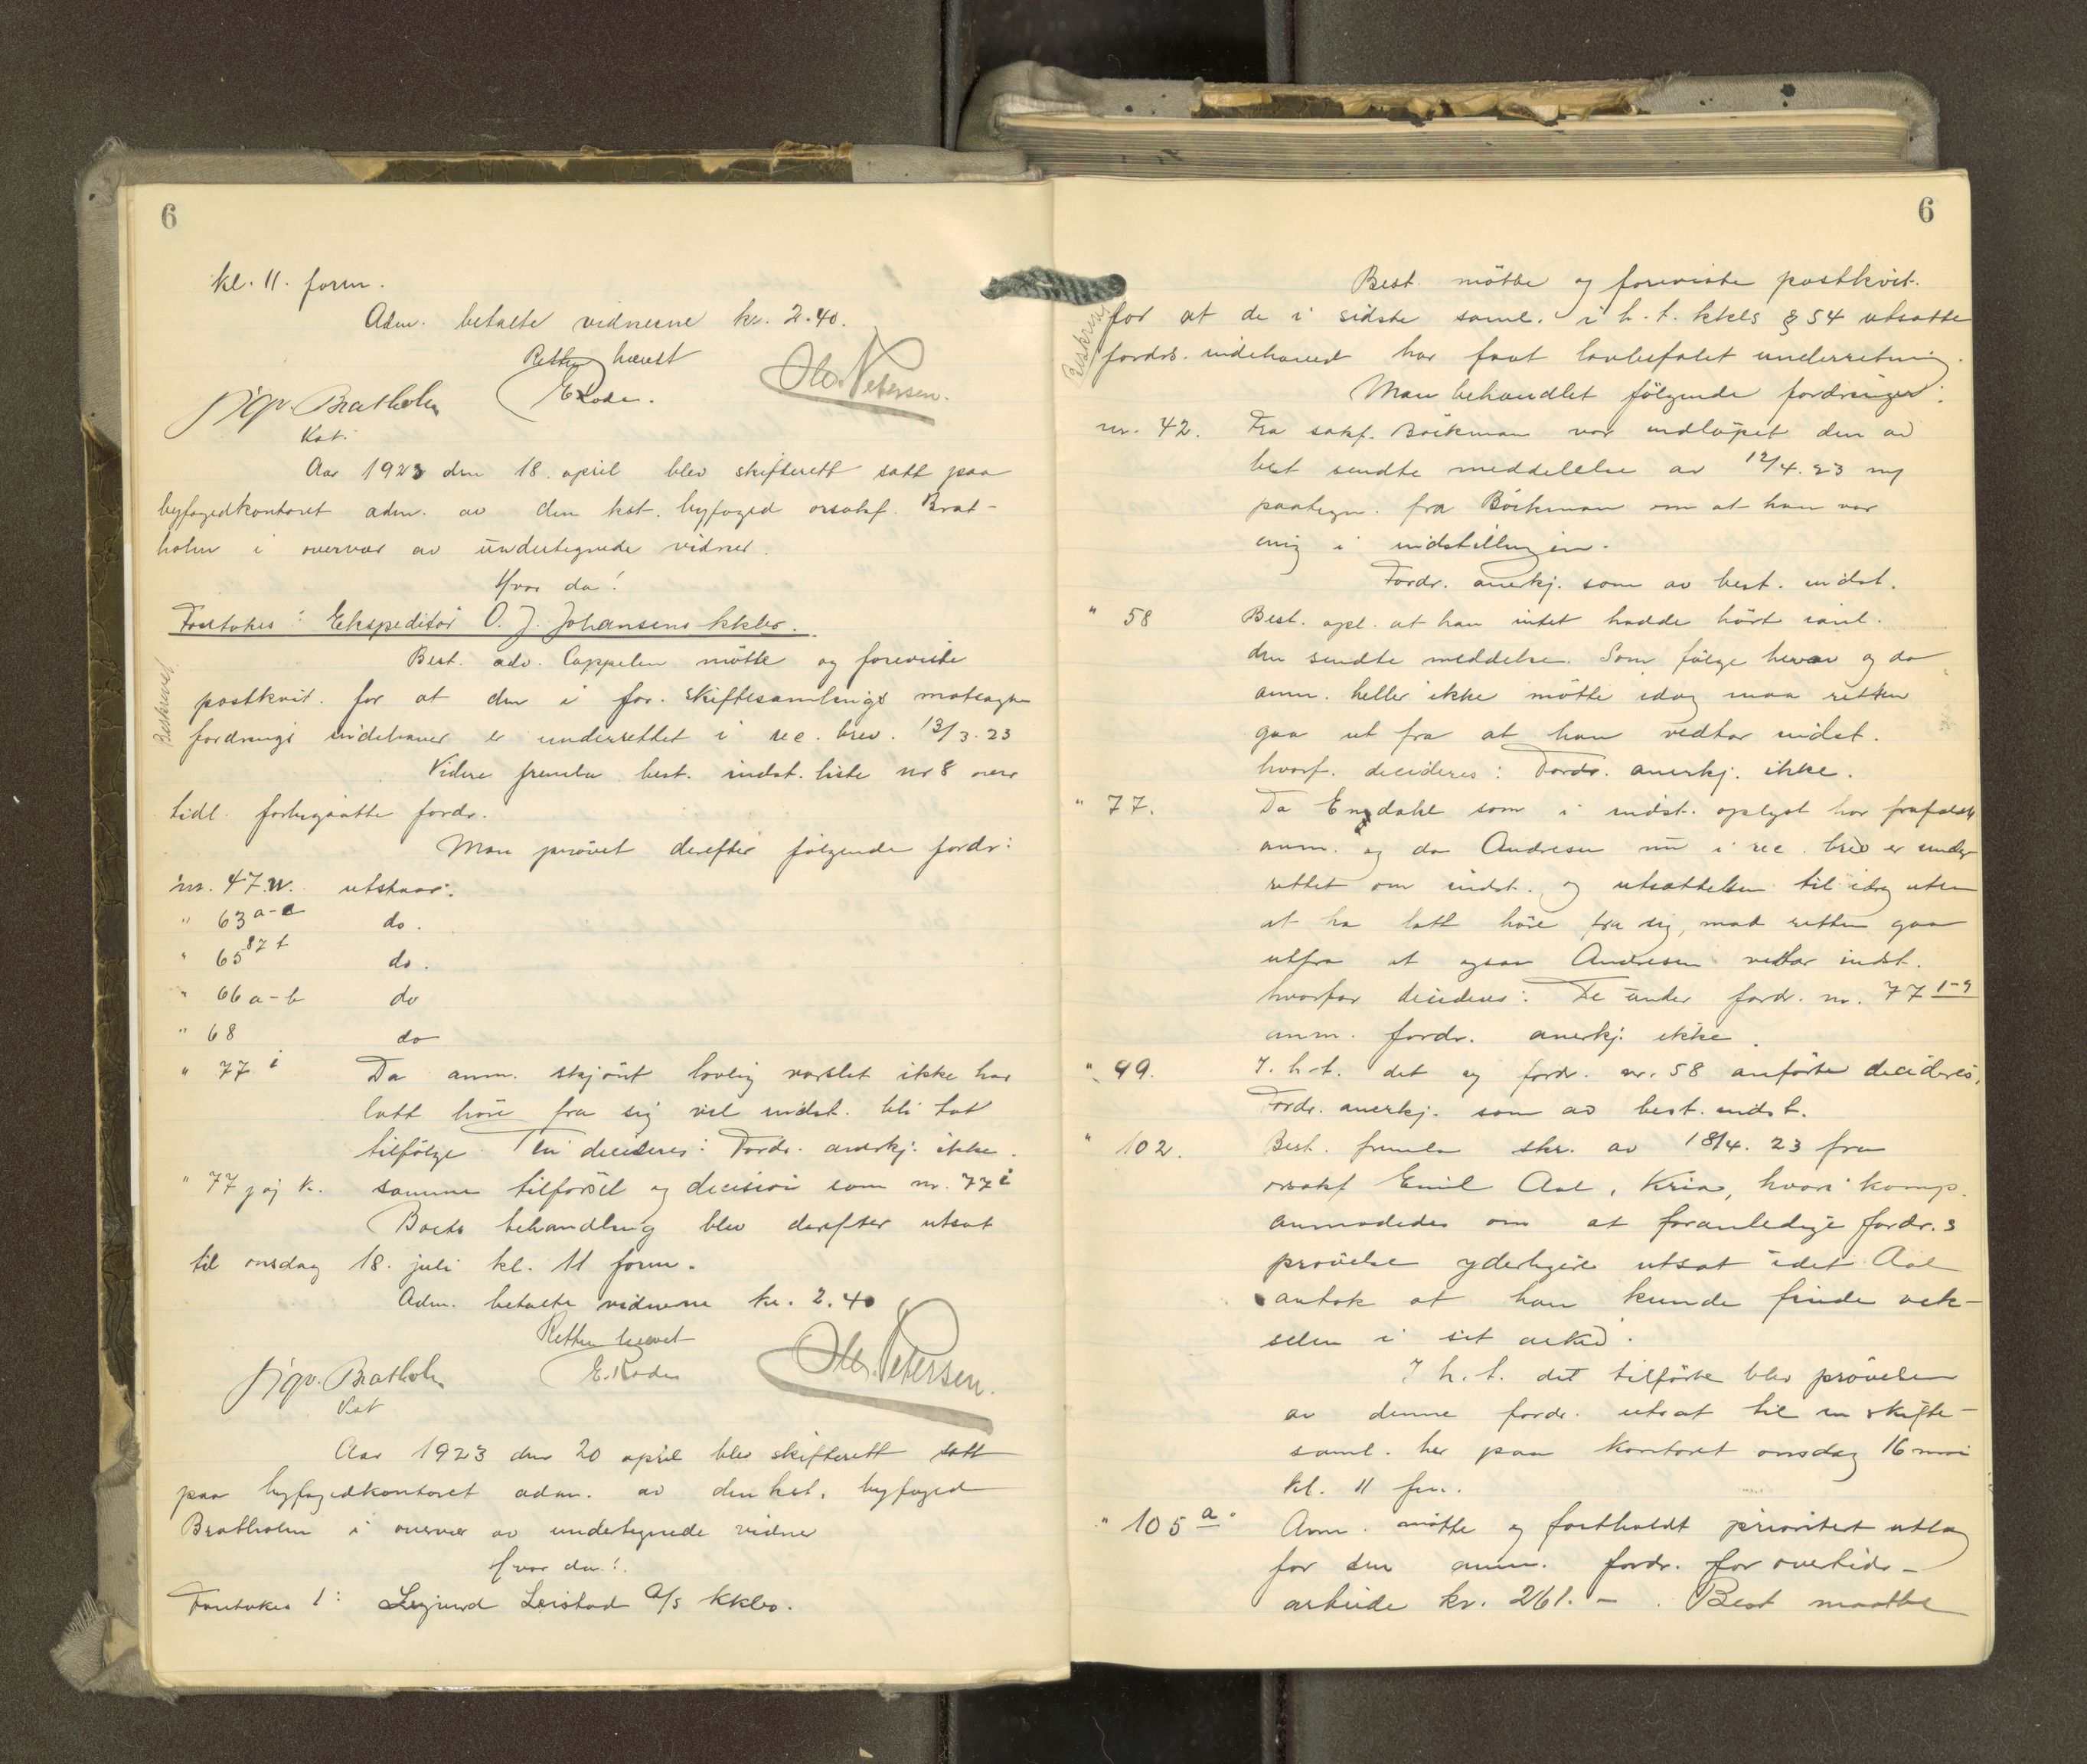 6
kl. 11. form.
Adm. betalte vidnerne kr. 2.40.
Retten hævet
Sigv. Bratholm E Rode. Ole Petersen.
Kst.
Aar 1923 den 18. april blev skifterett satt paa
byfogedkontoret adm. av den kst. byfoged orsakf. Brat-
holm i overvær av undertegnede vidner.
Hvor da!
Foretokes: Ekspeditör O. J. Johansens kkbo.
Beskrevet.
Best. adv. Cappelen mötte og foreviste
postkvit. for at den i for. skiftesamlings motsagte
fordrings indehaver er underrettet i rec. brev. 13/3.23
Videre fremla best. indst. liste nr 8 over
tidl. forbigaatte fordr.
Man prövet derefter fölgende fordr:
nr. 47.w. utstaar.
" 63 a-c do.
" 65 87 t do.
" 66 a-b do
" 68 do
" 77 i Da anm. skjönt lovlig varslet ikke har
latt höre fra sig vil indst. bli tat
tilfölge. Thi decideres: Fordr. anerkj. ikke.
" 77 j og k. samme tilförsel og decision som nr. 77 i
Boets behandling blev derefter utsat
til onsdag 18. juli kl. 11 form.
Adm. betalte vidnerne kr. 2.40
Retten hævet
Sigv. Bratholm E. Rode Ole Petersen.
Kst
Aar 1923 den 20 april blev skifterett satt
paa byfogedkontoret adm. av den kst. byfoged
Bratholm i overvær av undertegnede vidner
Hvor da!
Foretokes 1: Leistad A/S kkbo.
6
Best. mötte og foreviste postkvit.
Beskrevet
for at de i sidste saml. i h. t. kkls § 54 utsatte
fordrs. indehaver har faat lovbefalet underretning.
Man behandlet fölgende fordringer:
nr. 42. Fra sakf. Böckman var indlöpet den av
best sendte meddelelse av 12/4.23 m/
paategn. fra Böckman om at han var
enig i indstillingen.
Fordr. anerkj. som av best. indst.
" 58 Best. opl. at han intet hadde hört ianl.
den sendte meddelse. Som fölge herav og da
anm. heller ikke mötte idag maa retten
gaa ut fra at han vedtar indst.
hvorf. decideres: Fordr. anerkj. ikke.
" 77. Da Engdahl som i indst. oplyst har frafaldt
anm. og da Andresen nu i rec. brev er under
rettet om indst. og utsættelsen til idag uten
at ha latt höre fra sig, maa retten gaa
utfra at ogsaa Andresen vedtar indst.
hvorfor decideres: De under fordr. nr. 77 1-9
anm. fordr. anerkj. ikke.
" 99. I. h. t. det vj fordr. nr. 58 anförte decideres:
Fordr. anerkj. som av best. indst.
" 102. Best. fremla skr. av 18/4. 23 fra
orsakf Emil Aal, Kria, hvori komp.
anmodedes om at foranledige fordr.s
prövelse yderligere utsat idet Aal
antok at han kunde finde vek-
selen i sit arkiv.
I h. t. det tilförte blev prövelsen
av denne fordr. utsat til en skifte-
saml. her paa kontoret onsdag 16 mai
kl. 11 fm.
" 105 a. Anm. mötte og fastholdt prioritert utlæg
for den anm. fordr. for overtids-
arbeide kr. 261.- . Best maatte